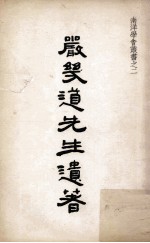 南洋學會叢書之二
嚴幾道先生遺著